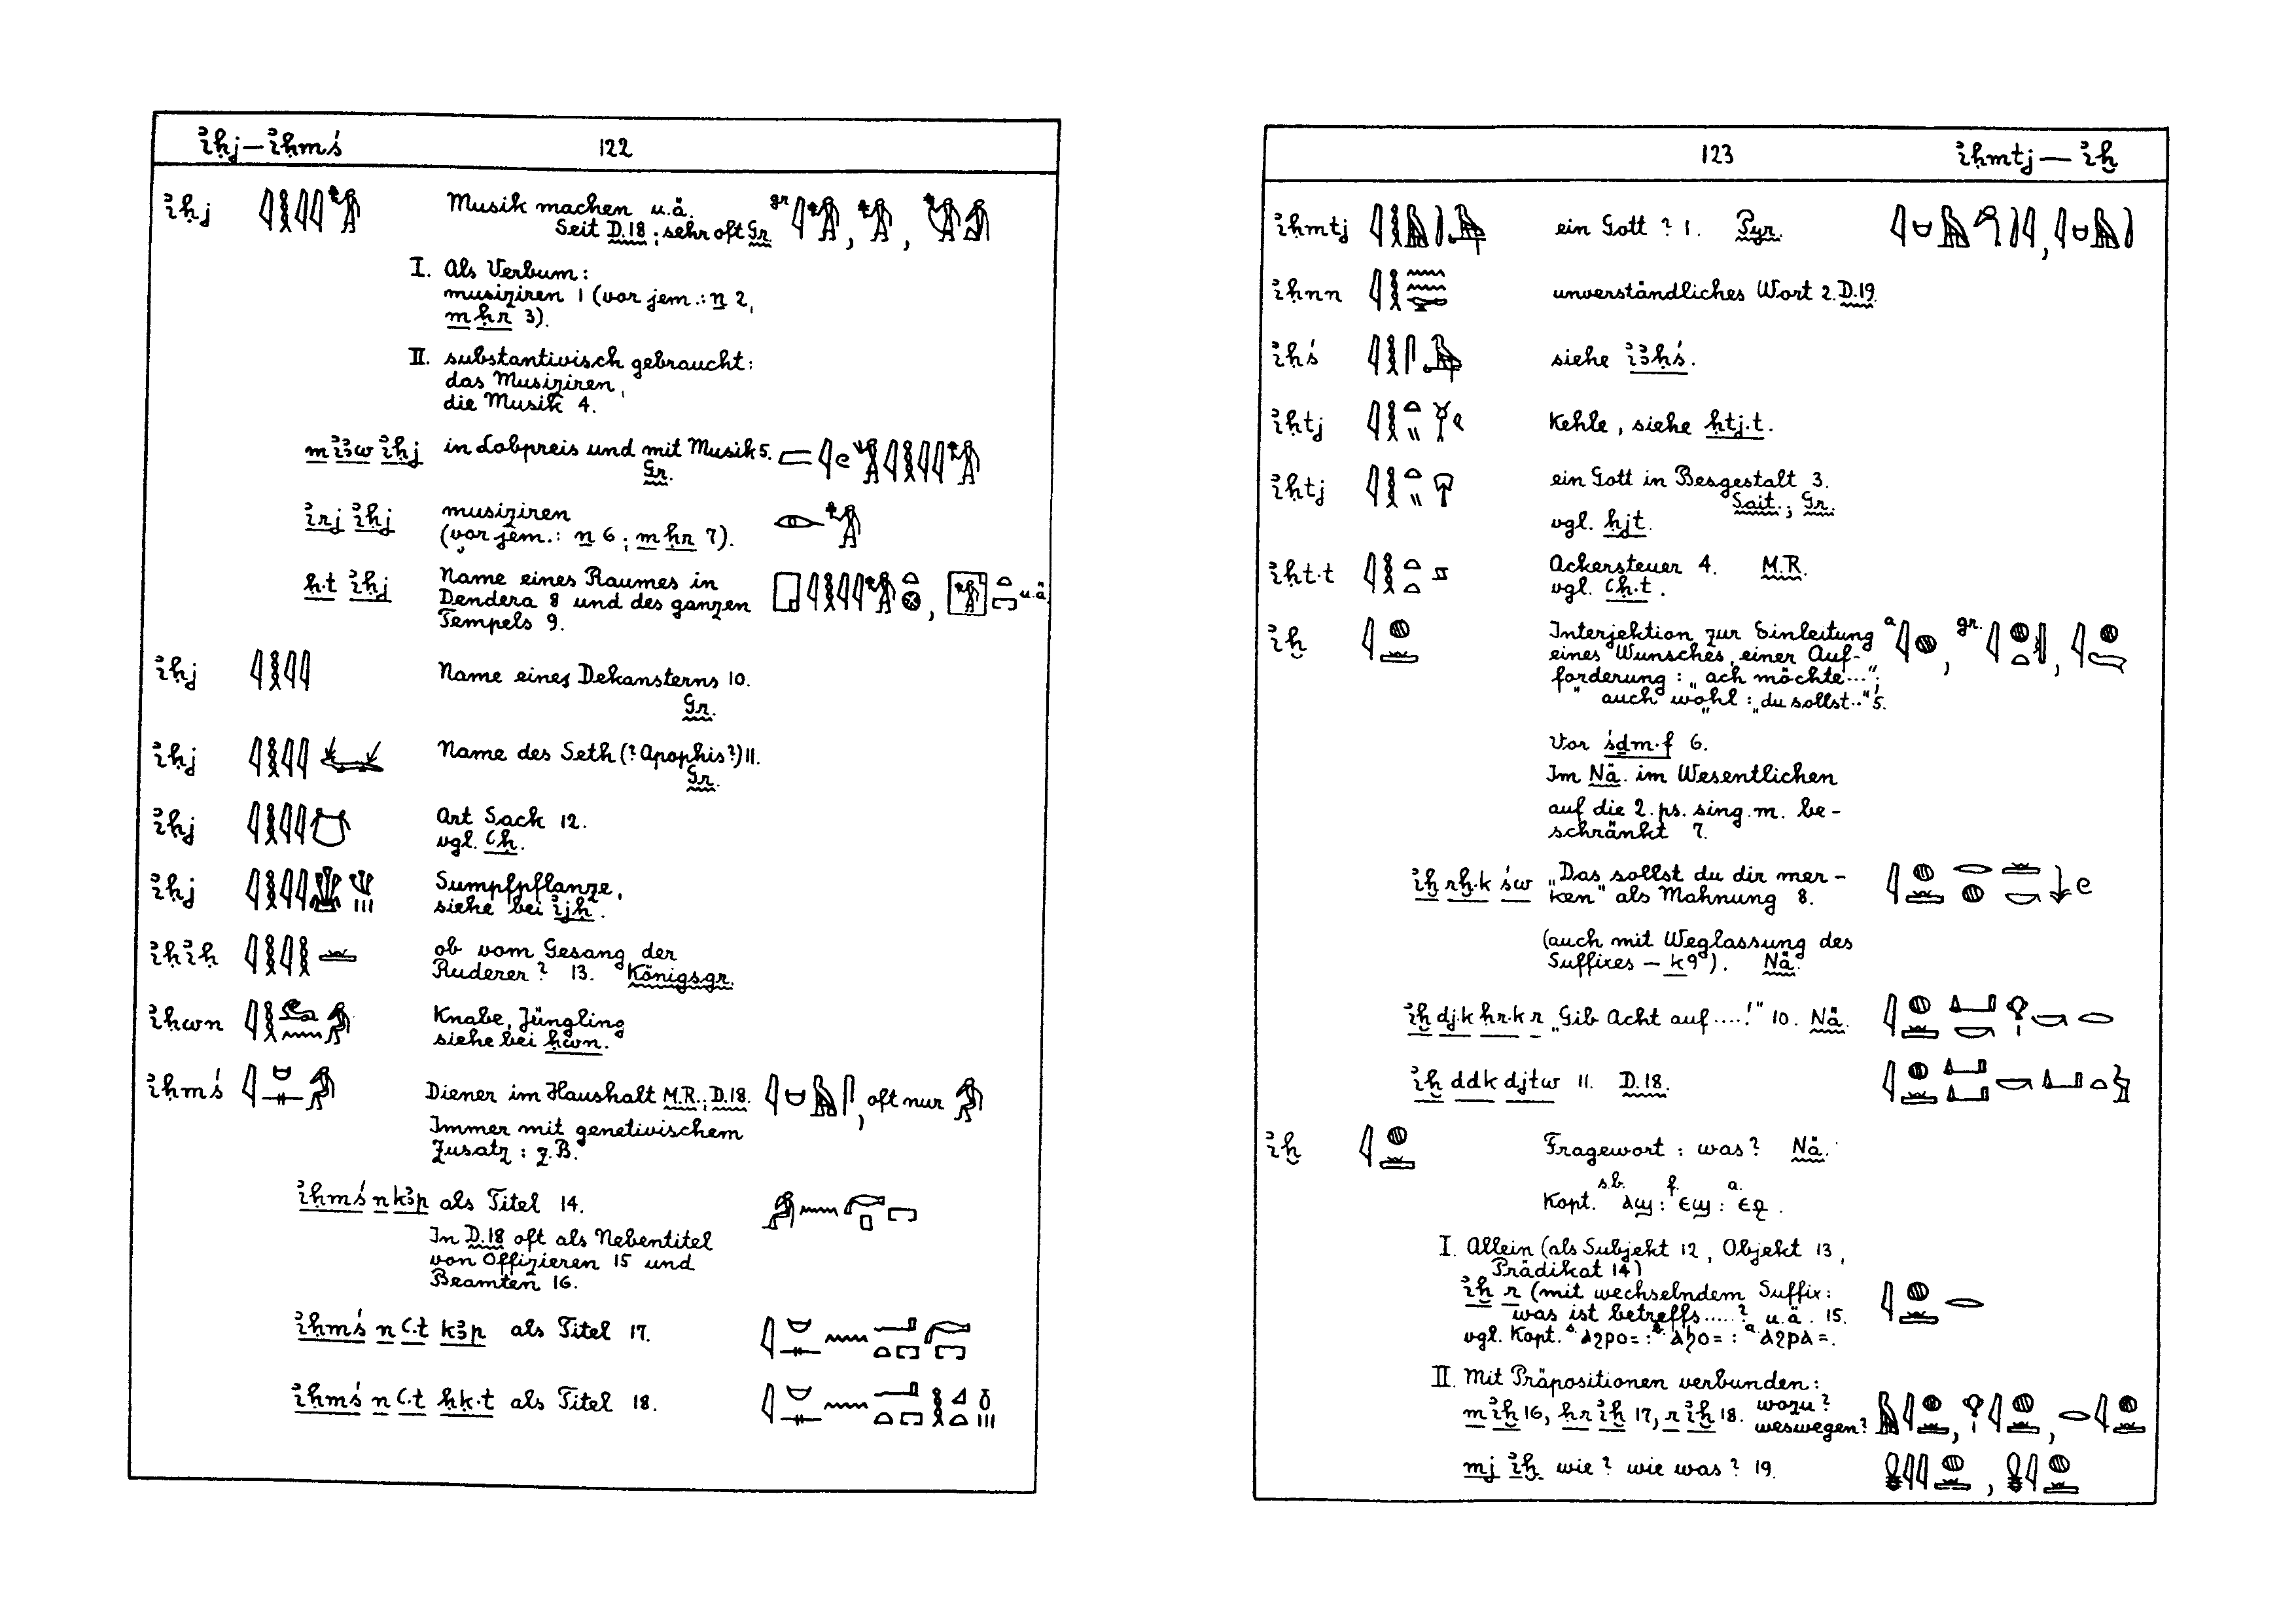 ı͗ḥj — ı͗ḥmś 122
ı͗ḥj Musik machen u.ä.
Seit D.18; sehr oft Gr. gr
I. Als Verbum:
musiziren 1 (vor jem.: n 2,
m ḥr 3).
II. substantivisch gebraucht:
das Musiziren,
die Musik 4.
m ı͗ꜣw ı͗ḥj in Lobpreis und mit Musik 5.
Gr.
ı͗rj ı͗ḥj musiziren
(vor jem.: n 6; m ḥr 7).
ḥ.t ı͗ḥj Name eines Raumes in
Dendera 8 und des ganzen u.ä.
Tempels 9.
ı͗ḥj Name eines Dekansterns 10.
Gr.
ı͗ḥj Name des Seth (? Apophis?) 11.
Gr.
ı͗ḥj Art Sack 12.
vgl. ꜥḥ.
ı͗ḥj Sumpfpflanze,
siehe bei ı͗jḥ.
ı͗ḥı͗ḥ ob vom Gesang der
Ruderer? 13. Königsgr.
ı͗ḥwn Knabe, Jüngling
siehe bei ḥwn.
ı͗ḥmś Diener im Haushalt M.R.; D.18. , oft nur
Immer mit genetivischem
Zusatz: z.B.
ı͗ḥmś n kꜣp als Titel 14.
In D.18 oft als Nebentitel
von Offizieren 15 und
Beamten 16.
ı͗ḥmś n ꜥ.t kꜣp als Titel 17.
ı͗ḥmś n ꜥ.t ḥḳ.t als Titel 18.
123 ı͗ḥmtj — ı͗ḫ
ı͗ḥmtj ein Gott? 1. Pyr.
ı͗ḥnn unverständliches Wort 2. D.19.
ı͗ḥś siehe ı͗ꜣḥś.
ı͗ḥtj Kehle, siehe ḥtj.t.
ı͗ḥtj ein Gott in Besgestalt 3.
Sait.; Gr.
vgl. ḥjt.
ı͗ḥt.t Ackersteuer 4. M.R.
vgl. ꜥḥ.t.
ı͗ḫ Interjektion zur Einleitung a gr.
eines Wunsches, einer Auf-
forderung: „ach möchte...“;
auch wohl: „du sollst..“ 5.
Vor śḏm.f 6.
Im Nä. im Wesentlichen
auf die 2. ps. sing. m. be-
schränkt 7.
ı͗ḫ rḫ.k św „Das sollst du dir mer-
ken“ als Mahnung 8.
(auch mit Weglassung des
Suffixes – k 9). Nä.
ı͗ḫ dj.k ḥr.k r „Gib Acht auf....!“ 10. Nä.
ı͗ḫ ddk djtw 11. D.18.
ı͗ḫ Fragewort: was? Nä.
s.b. f. a.
Kopt. ⲁϣ: ⲉϣ: ⲉϩ.
I. Allein (als Subjekt 12, Objekt 13,
Prädikat 14)
ı͗ḫ r (mit wechselndem Suffix:
was ist betreffs.....? u.ä. 15.
vgl. Kopt. s. ⲁϩⲣⲟ=: b. ⲁϧⲟ=: a. ⲁϩⲣⲁ=.
II. Mit Präpositionen verbunden:
m ı͗ḫ 16, ḥr ı͗ḫ 17, r ı͗ḫ 18. wozu?
weswegen?
mj ı͗ḫ wie? wie was? 19.